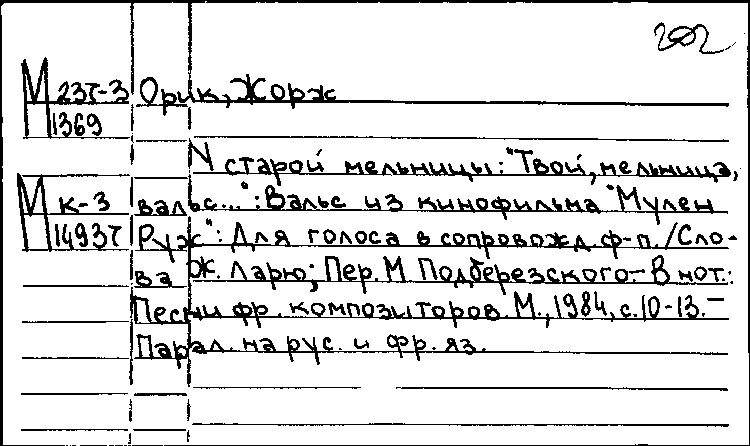 202
М 237-3 Орик, Жорж
1369
У старой мельницы: "Твой, мельница,
М К-3 вальс...": Вальс из кинофильма "Мулен
14937 Руж": Для голоса в сопровожд. ф-п. / Сло-
ва Ж. Ларю; Пер. М Подберезского. - В нот.:
Песни фр. композиторов. М., 1984, с. 10-13. -
Парал. на рус. и фр. яз.